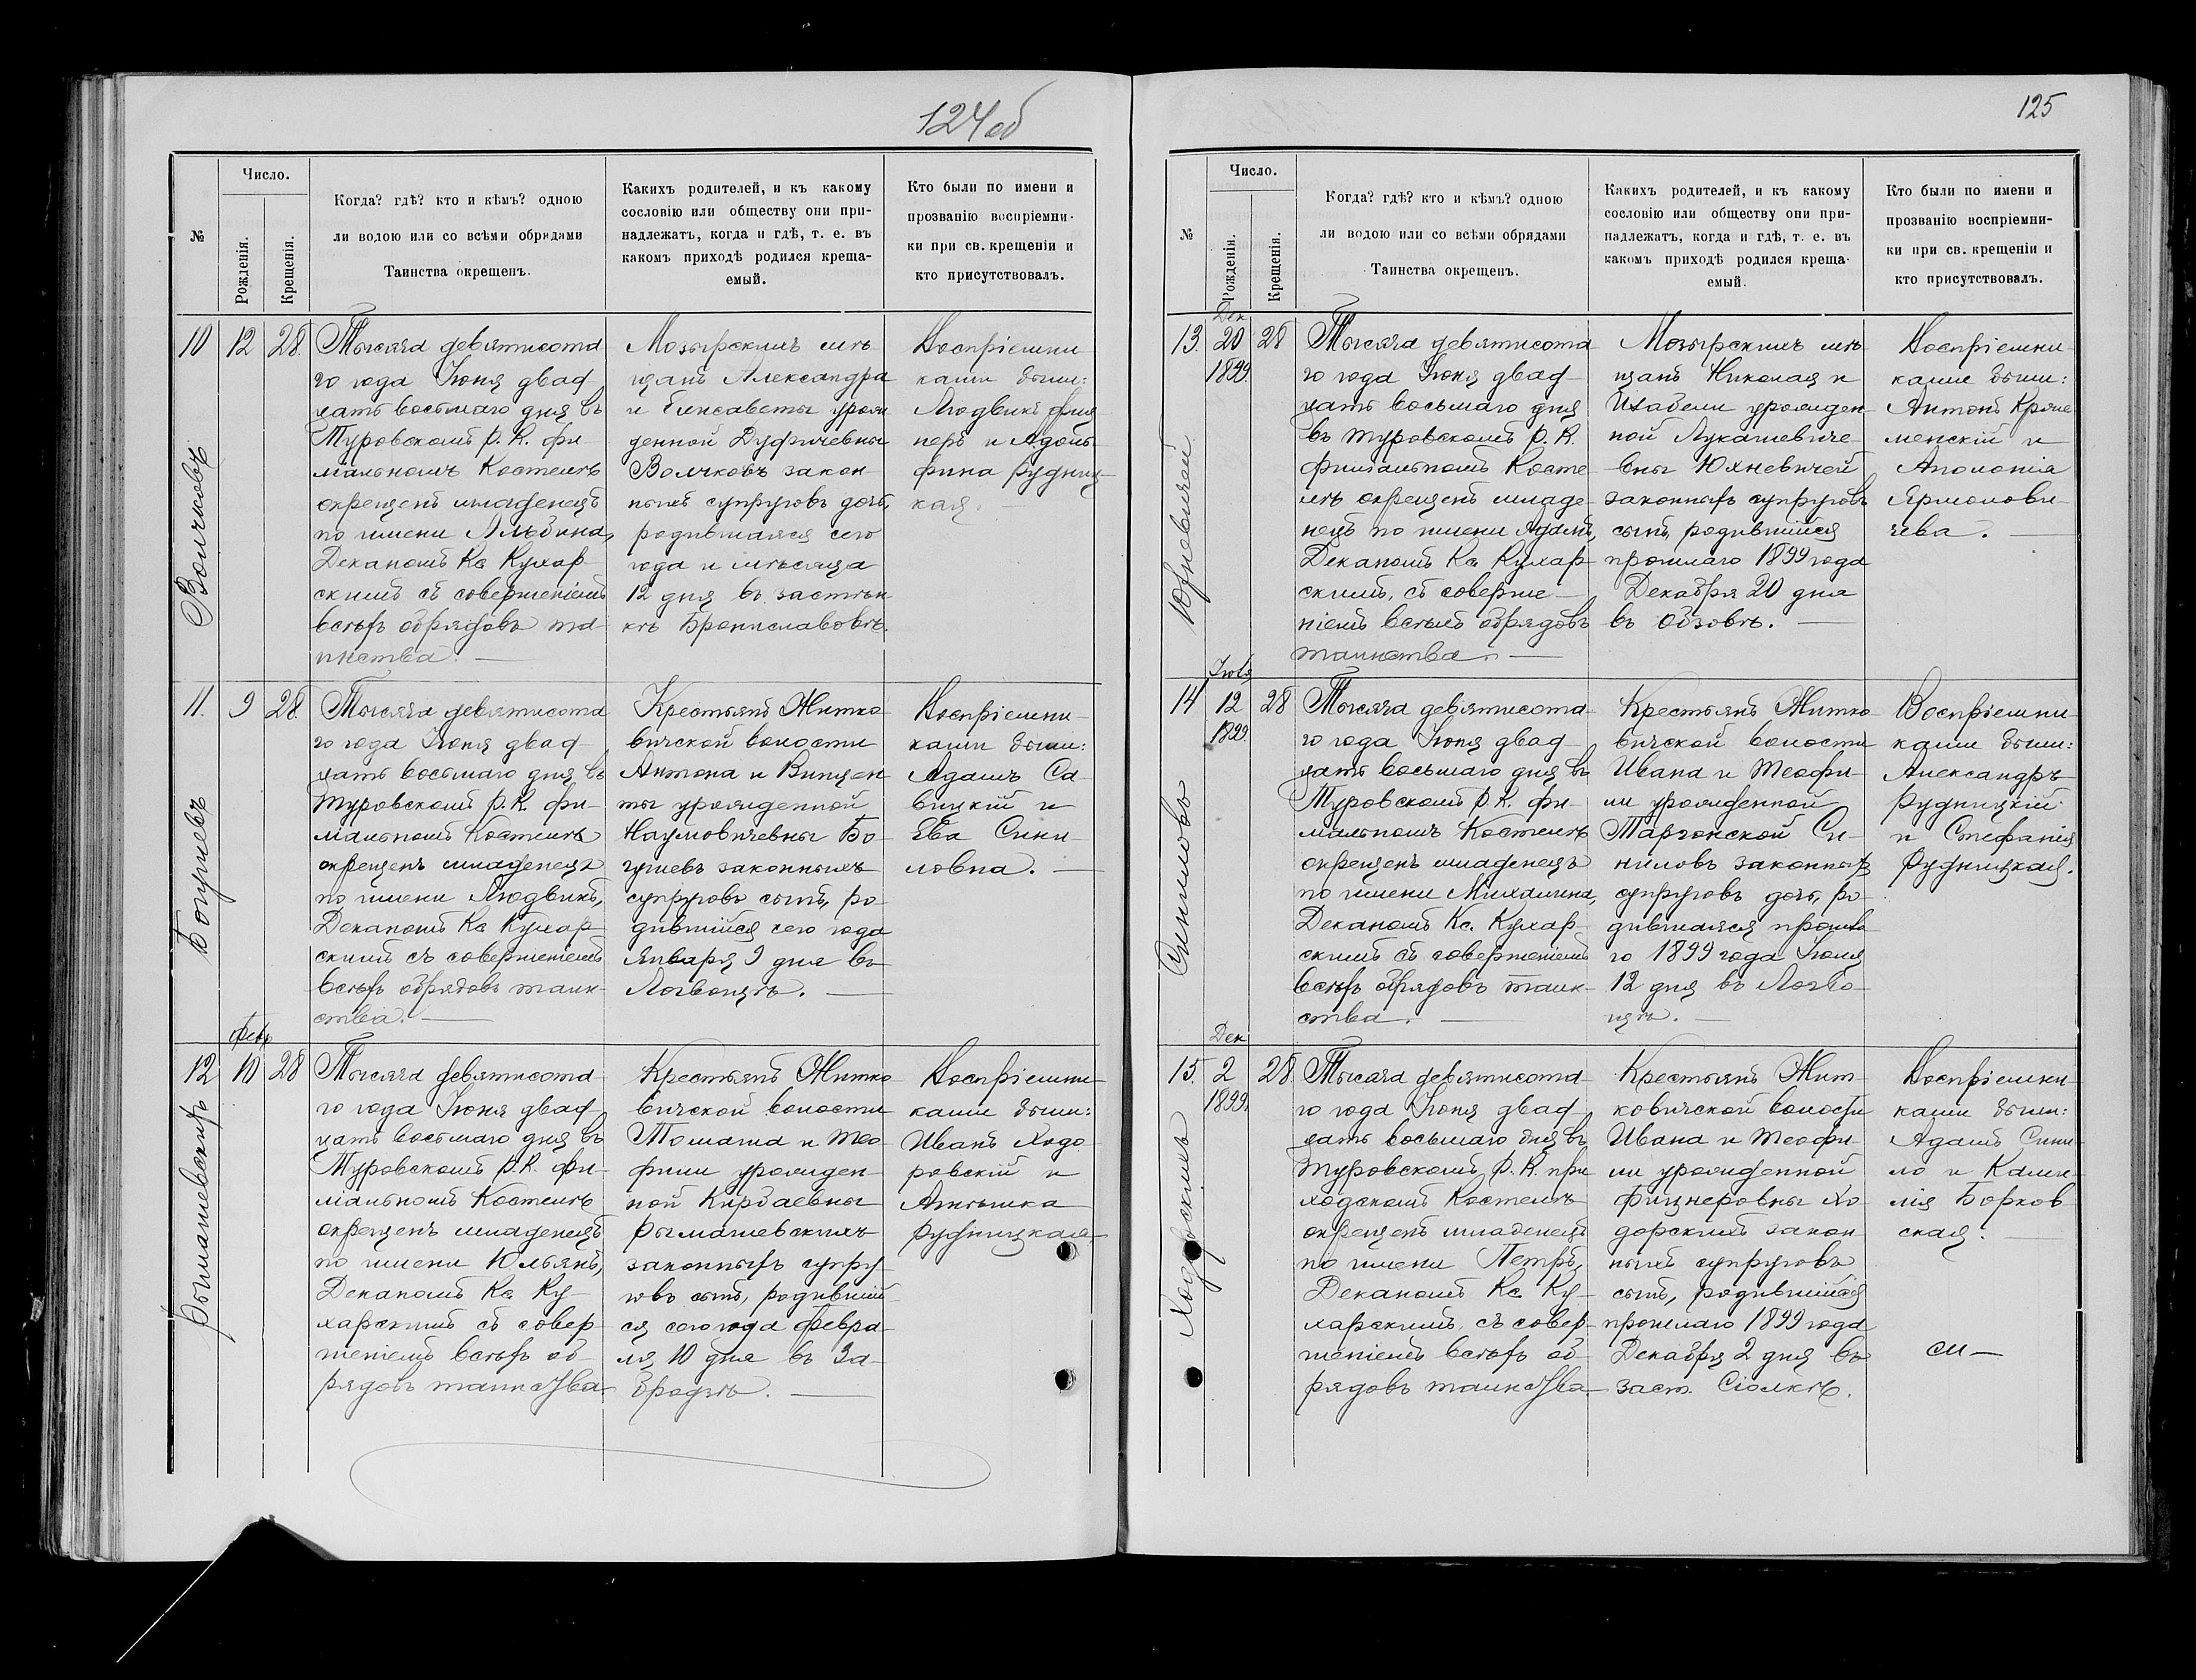 124 об
№
Число.
Рожденія.
Крещенія.
Когда? гдѣ? кто и кѣмъ? одною
ли водою или со всѣми обрядами
Таинства окрещенъ.
Какихъ родителей, и къ какому
сословію или обществу они при-
надлежатъ, когда и гдѣ, т. е. въ
какомъ приходѣ родился креща-
емый.
Кто были по имени и
прозванію воспріемни-
ки при св. крещеніи и
кто присутствовалъ.
Волчковъ
10 12 28.
Тысяча девятисота
го года Іюня двад
цать восьмаго дня въ
Туровскомъ Р. К. фи-
ліальномъ Костелѣ
окрещенъ младенецъ
по имени Альбина,
Деканомъ Кс. Кухар-
скимъ съ совершеніемъ
всѣхъ обрядовъ та-
инства. —
Мозырскихъ мѣ-
щанъ Александра
и Елисаветы урож
денной
Волчковъ закон-
ныхъ супруговъ дочь,
родившаяся сего
года и мѣсяца
12 дня въ застѣн
кѣ Брониславовѣ.
Воспріемни-
ками были:
Людвикъ Фиц
неръ и Адоль
фина Рудниц-
кая. —
Богушевъ
11. 9 28.
Тысяча девятисота
го года Іюня двад
цать восьмаго дня въ
Туровскомъ Р. К. фи-
ліальномъ Костелѣ
окрещенъ младенецъ
по имени Людвикъ,
Деканомъ Кс. Кухар-
скимъ съ совершеніемъ
всѣхъ обрядовъ таин-
ства. —
Крестьянъ Житко
вичской волости
Антона и Винцен
ты урожденной
Наумовичевны Бо-
гушевъ законныхъ
супруговъ сынъ, ро-
дившійся сего года
Января 9 дня въ
Логвощѣ. —
Воспріемни-
ками были:
Адамъ Са-
вицкій и
Ева Сини-
ловна. —
Рымашевскихъ
Февр
12 10 28
Тысяча девятисота-
го года Іюня двад
цать восьмаго дня въ
Туровскомъ Р. К. фи-
ліальномъ Костелѣ
окрещенъ младенецъ
по имени Юльянъ,
Деканомъ Кс. Ку-
харскимъ съ совер-
шеніемъ всѣхъ об-
рядовъ таинства
Крестьянъ Житко
вичской волости
Томаша и Тео-
фили урожден-
ной Кирбаевны
Рымашевскихъ
законныхъ супру
говъ сынъ, родившій-
ся сего года Февра-
ля 10 дня въ За-
бродзѣ. —
Воспріемни-
ками были:
Иванъ Ходо-
ровскій и
Агнѣшка
Рудницкая
125
№
Число.
Рожденія.
Крещенія.
Когда? гдѣ? кто и кѣмъ? одною
ли водою или со всѣми обрядами
Таинства окрещенъ.
Какихъ родителей, и къ какому
сословію или обществу они при-
надлежатъ, когда и гдѣ, т. е. въ
какомъ приходѣ родился креща-
емый.
Кто были по имени и
прозванію воспріемни-
ки при св. крещеніи и
кто присутствовалъ.
Юхневичей
Дек
13. 20 28
1899.
Тысяча девятисота
го года Іюня двад-
цать восьмаго дня
въ Туровскомъ Р. К.
филіальномъ Косте-
лѣ окрещенъ младе-
нецъ по имени Адамъ,
Деканомъ Кс. Кухар-
скимъ, съ соверше-
ніемъ всѣхъ обрядовъ
таинства. —
Мозырскихъ мѣ
щанъ Николая и
Изабели урожден
ной Лукашевиче-
вны Юхневичей
законныхъ супруговъ
сынъ, родившійся
прошлаго 1899 года
Декабря 20 дня
въ Обзовѣ. —
Воспріемни-
ками были:
Антонъ Креме
менскій и
Аполонія
Ярмолови-
чева. —
Синиловъ
Іюля
14 12 28
1899.
Тысяча девятисота-
го года Іюня двад-
цать восьмаго дня въ
Туровскомъ Р. К. фи-
ліальномъ Костелѣ
окрещенъ младенецъ
по имени Михалина,
Деканомъ Кс. Кухар-
скимъ съ совершеніемъ
всѣхъ обрядовъ таин-
ства. —
Крестьянъ Житко
вичской волости
Ивана и Теофи-
ли урожденной
Таргонской Си-
ниловъ законныхъ
супруговъ дочь, ро-
дившаяся прошла
го 1899 года Іюля
12 дня въ Логво-
щѣ. —
Воспріемни-
ками были:
Александръ
Рудницкій
и Стефанія
Рудницкая.
Ходорскихъ
Дек
15. 2 28.
1899.
Тысяча девятисота-
го года Іюня двад
цать восьмаго дня въ
Туровскомъ Р. К. при
ходскомъ Костелѣ
окрещенъ младенецъ
по имени Петръ,
Деканомъ Кс. Ку-
харскимъ, съ совер-
шеніемъ всѣхъ об-
рядовъ таинства.
Крестьянъ Жит-
ковичской волости
Ивана и Теофи-
ли урожденной
Фицнеровны Хо-
дорскихъ закон-
ныхъ супруговъ
сынъ, родившійся
прошлаго 1899 года
Декабря 2 дня въ
заст. Сіолкѣ.
Воспріемни-
ками были:
Адамъ Сини-
ло и Ками-
лія Борков-
ская.